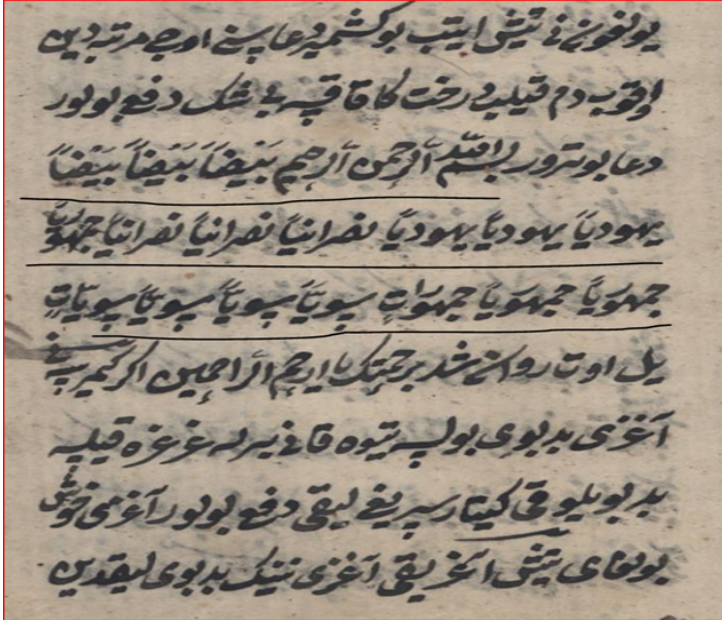 یولغونی نی تیشی ایتب بو کشمیر دعا سنے اوچ مرتبه دین
اوقوب دم قیلیب درخت کا قاقسه بے شک دفع بولور
دعا بو ترور بسم الله الرحمن الرحیم بَیَضاً بَیَضاً بَیَضاً
یهودیاً یهودیاً یهودیاً نصرانیاً نصرانیاً نصرانیاً جمهویاً
جمهویاً جمهویاً جمهوَاتٍ سبویاً سبویاً سبویاً سبویاتٍ
یل اوت روانے شد برحمتک یا ارحم الراحمین اکر کیم
آغزی بدبوی بولسه تیوه قانے بیرله غرغره قیلسه
بدبویلوقی کیتار سریغ لیقی دفع بولور آغزی خوشبوی
بولغای تیشی آغریقی آغزی نینک بدبوی لیقدین